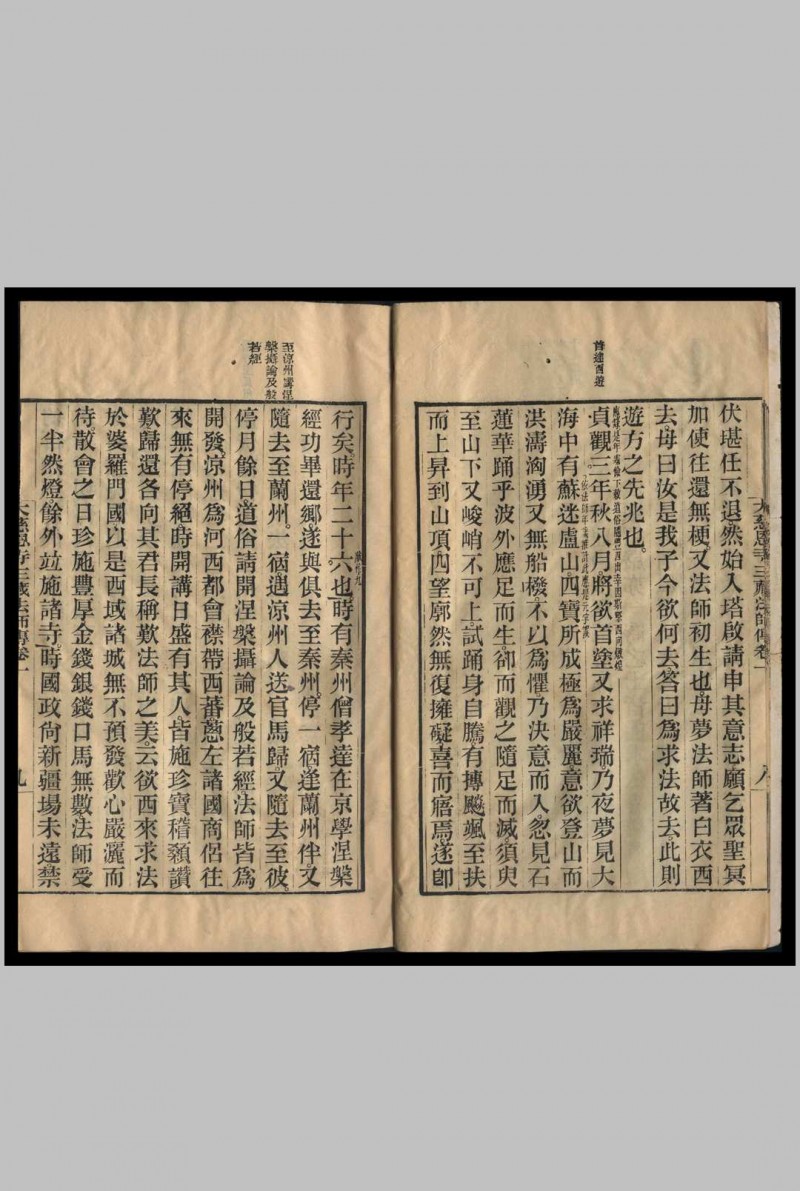 首途西遊
伏堪任不退然始入塔啟請申其意志願乞眾聖冥
加使往還無梗又法師初生也母夢法師著白衣西
去母曰汝是我子今欲何去答曰為求法故去此則
遊方之先兆也
貞觀三年秋八月將欲首塗又求祥瑞乃夜夢見大
海中有蘇迷盧山四寶所成極為嚴麗意欲登山而
洪濤洶湧又無船橃不以為懼乃決意而入忽見石
蓮華踊乎波外應足而生卻而觀之隨足而滅須臾
至山下又峻峭不可上試踊身自騰有摶飈颯至扶
而上昇到山頂四望廓然無復擁礙喜而寤焉遂卽
至涼州講涅
槃攝論及般
若經
行矣時年二十六也時有秦州僧孝達在京學涅槃
經功畢還鄉遂與俱去至秦州停一宿逢蘭州伴又
隨去至蘭州一宿遇涼州人送官馬歸又隨去至彼
停月餘日道俗請開涅槃攝論及般若經法師皆為
開發涼州為河西都會襟帶西蕃蔥左諸國商侶往
來無有停絕時開講日盛有其人皆施珍寶稽顙讚
歎歸還各向其君長稱歎法師之美云欲西來求法
於婆羅門國以是西域諸城無不預發歡心嚴灑而
待散會之日珍施豐厚金錢銀錢口馬無數法師受
一半然燈餘外竝施諸寺時國政尙新疆場未遠禁